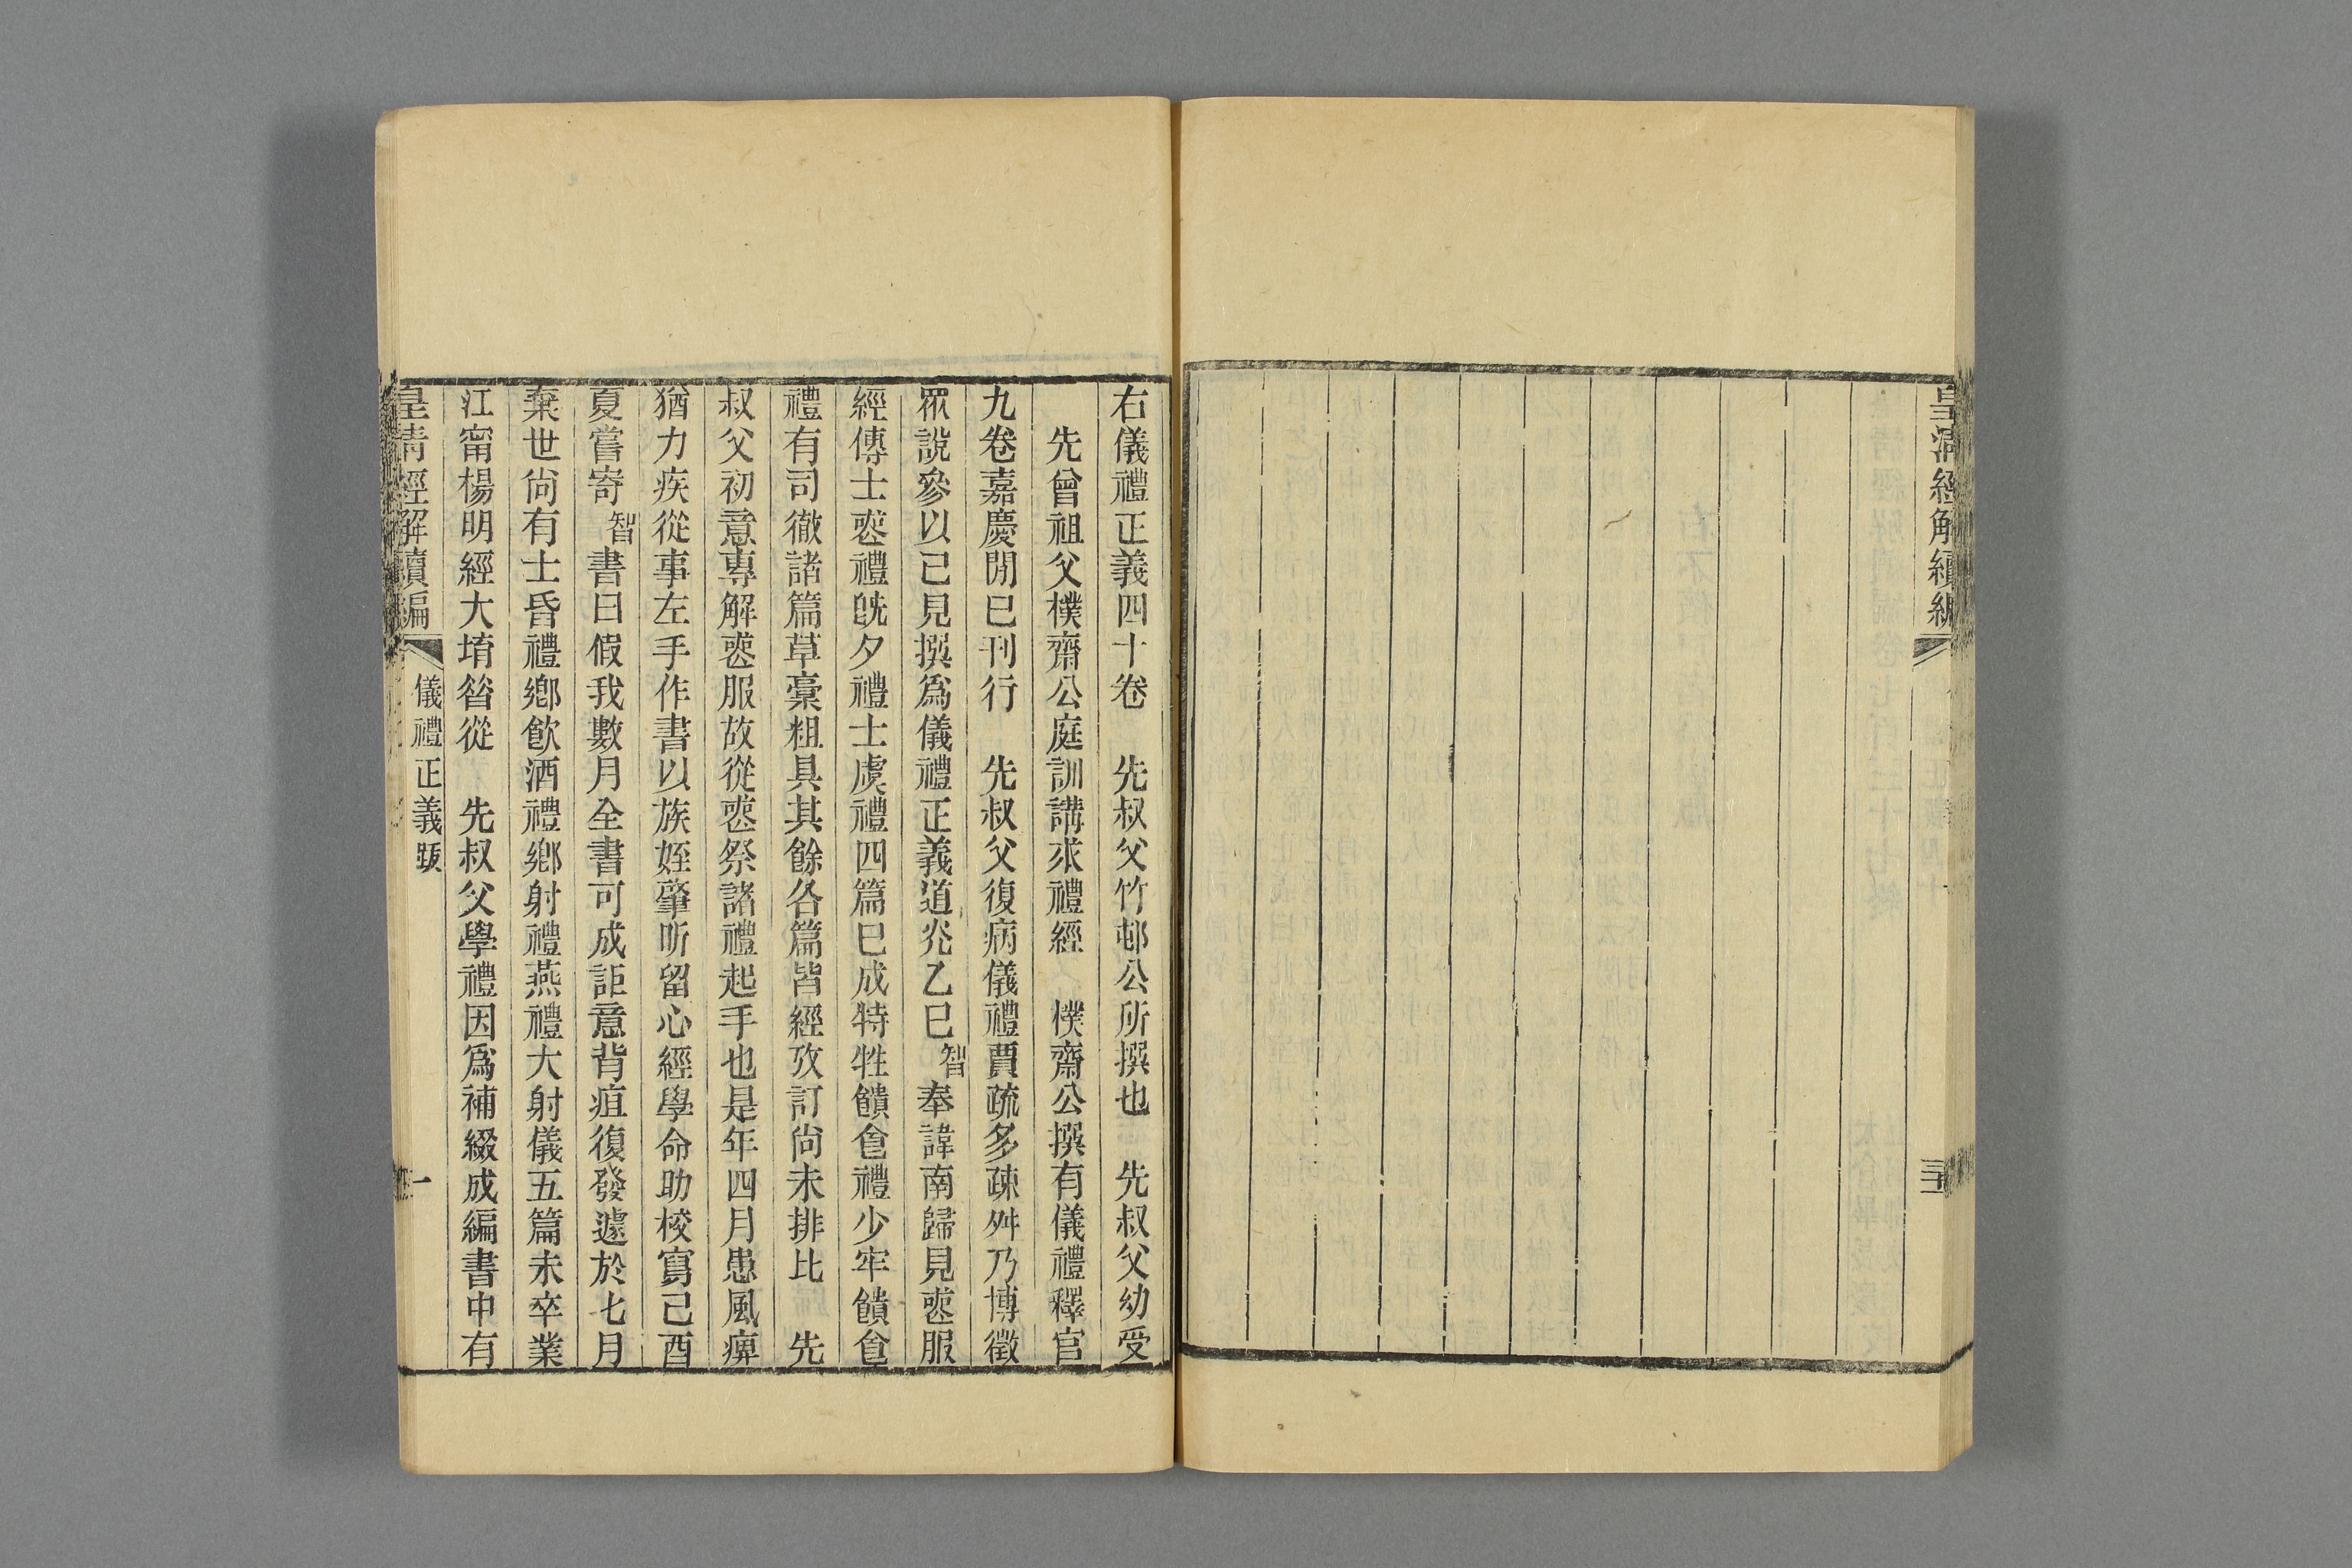 皇清經解續編
三十
右儀禮正義四十卷　先叔父竹邨公所撰也　先叔父幼受
先曾祖父樸齋公庭訓講求禮經　樸齋公撰有儀禮釋官
九卷嘉慶閒已刊行　先叔父復病儀禮賈疏多疎舛乃博徵
眾說參以己見撰爲儀禮正義道光乙巳智奉諱南歸見喪服
經傳士喪禮旣夕禮士虞禮四篇已成特牲饋食禮少牢饋食
禮有司徹諸篇草稾粗具其餘各篇皆經攷訂尙未排比　先
叔父初意專解喪服故從喪祭諸禮起手也是年四月患風痹
猶力疾從事左手作書以族姪肇昕留心經學命助校寫己酉
夏嘗寄智書曰假我數月全書可成詎意背疽復發遽於七月
棄世尙有士昏禮鄉飮酒禮鄉射禮燕禮大射儀五篇未卒業
江甯楊明經大堉曾從　先叔父學禮因爲補綴成編書中有
皇清經解續編
儀禮正義跋
一